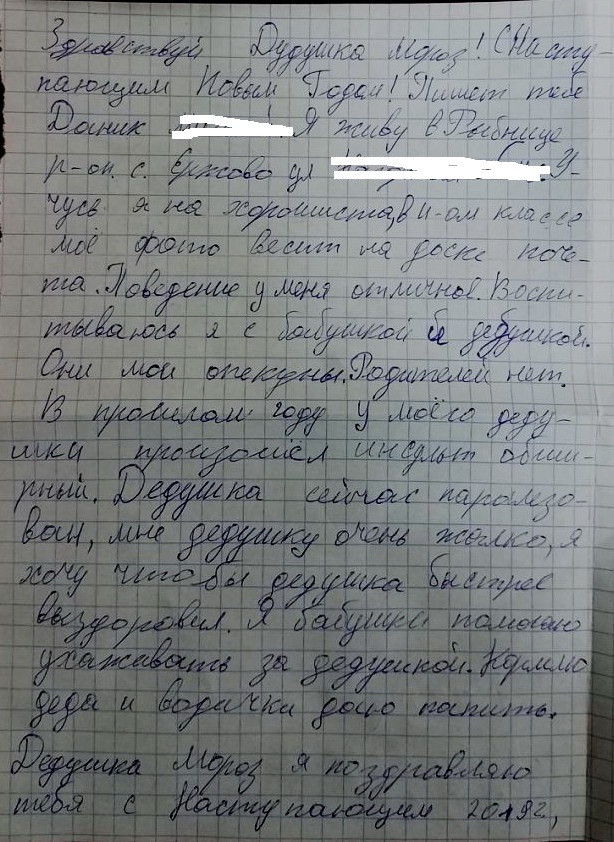 Здравствуй Дудушка Мороз! С Насту-
пающим Новым Годом! Пишет тебе
Даник Я живу в Рыбнице
р-он. с. Ержово ул У-
чусь я на хорошиста, в 4-ом классе
моё фото весит на доске поче-
та. Поведение у меня отличное. Воспи-
тываюсь я с бабушкой и дедушкой.
Они мои опекуны. Родителей нет.
В прошлом году у моёго деду-
шки произошёл инсульт обши-
рный. Дедушка сейчас парализо-
ван, мне дедушку очень жалко, я
хочу чтобы дедушка быстрее
выздоровил. Я бабушки помогаю
ухаживать за дедушкой. Кормлю
деда и водички даю папить.
Дедушка Мороз я поздравляю
тебя с Наступающим 2019г,